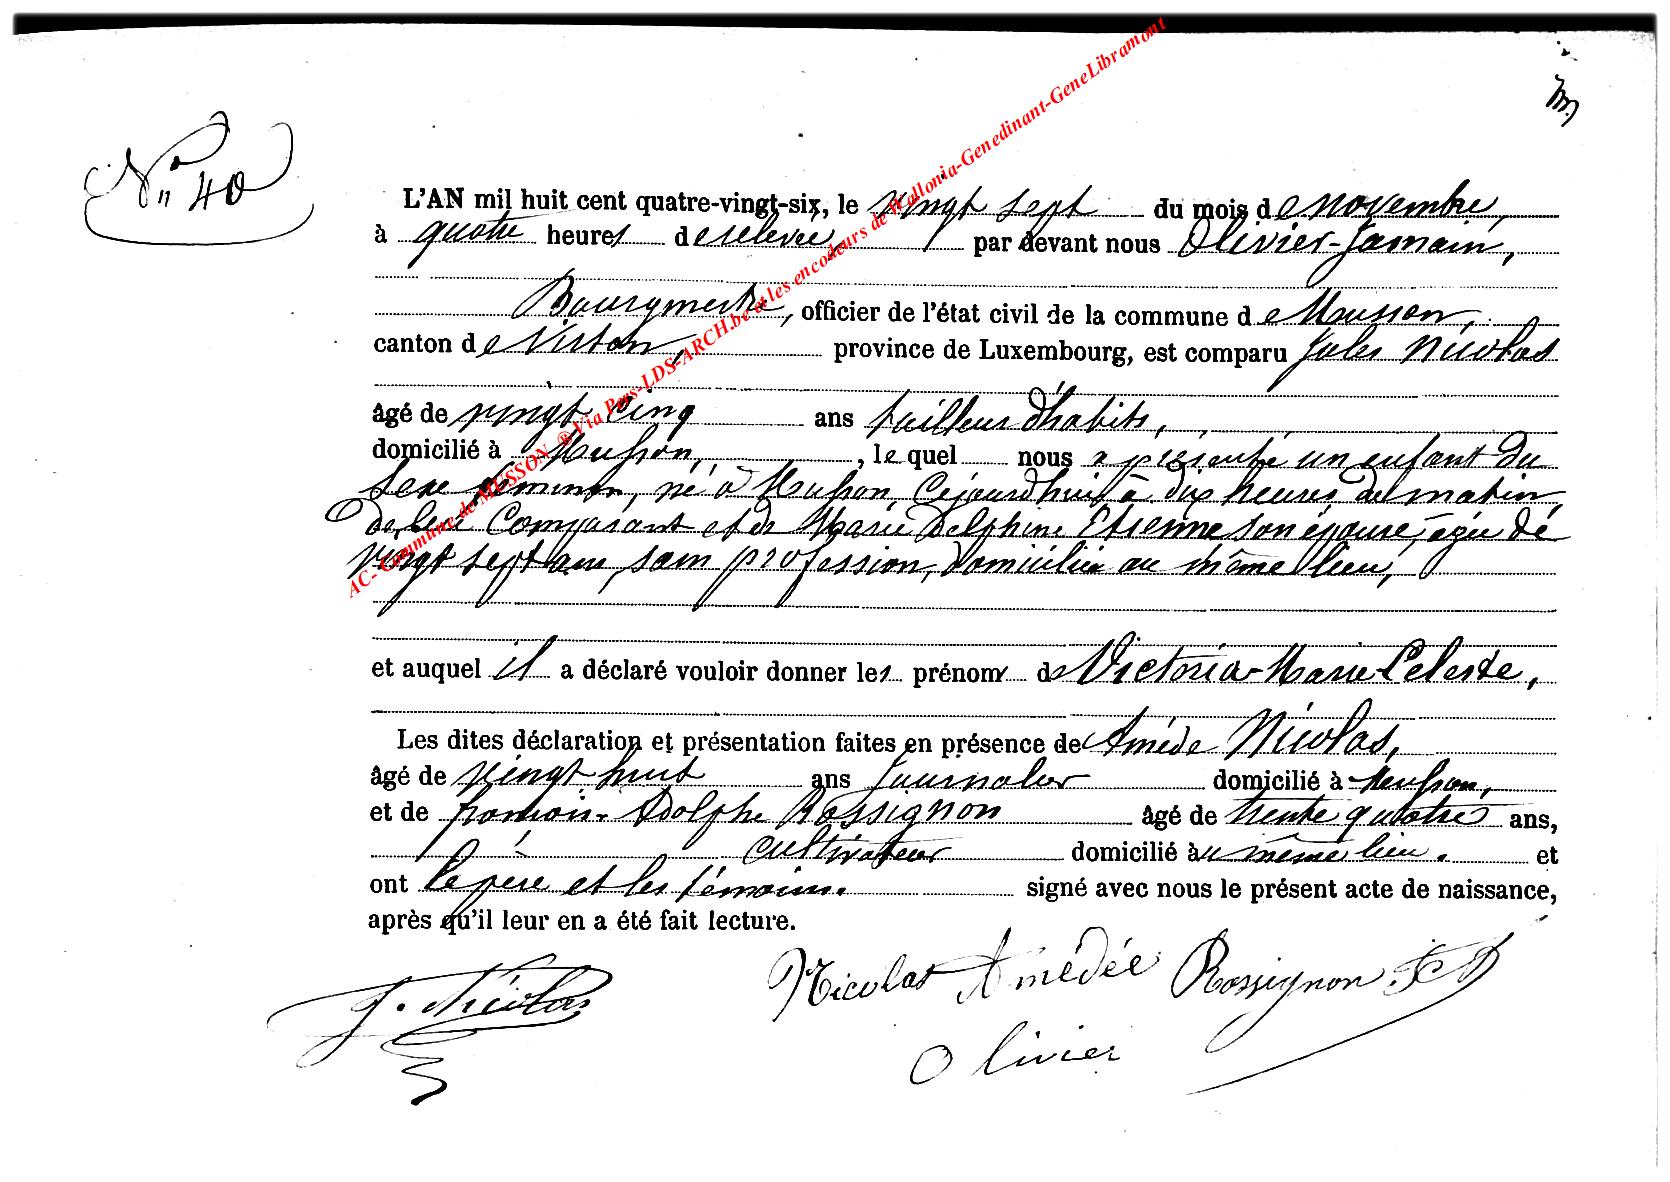 N° 40
L'AN mil huit cent quatre-vingt-six, le vingt sept du mois de novembre,
à quatre heures de relevée, par devant nous Olivier-Jamain,
Bourgmestre, officier de l'état civil de la commune de Musson,
canton de Virton, province de Luxembourg, est comparu Jules Nicolas
âgé de vingt cinq ans tailleur d'habits,
domicilié à Musson, , lequel nous a présenté un enfant du
sexe féminin, né à Musson, cejourd'hui à dix heures du matin,
de lui comparant et de Marie Delphine Etienne son épouse, âgée de
vingt sept ans, sans profession, domiciliée au même lieu,
et auquel il a déclaré vouloir donner les prénoms de Victoria-Marie-Celeste,
Les dites déclaration et présentation faites en présence de Amédé Nicolas,
âgé de vingt huit ans journalier domicilié à Musson,
et de Adolphe Rossignon âgé de trente quatre ans,
cultivateur domicilié au même lieu. et
ont le père et les témoins. signé avec nous le présent acte de naissance,
après qu'il leur en a été fait lecture.
J. Nicolas Nicolas Amédée Rossignon
Olivier
AC- Commune de MUSSON ® Via Pers-LDS-ARCH.be et les encodeurs de Wallonia-Genedinant-GeneLibramont